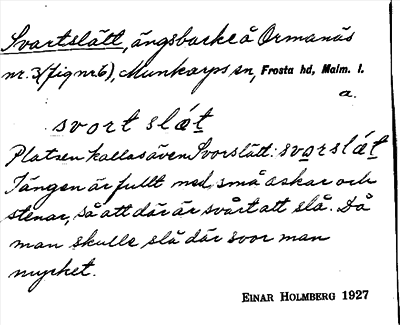 Svartslätt, ängsbacke å Ormanäs
nr. 3 (fig nr 6), Munkarps sn, Frosta hd, Malm. l.
a.
svort slæt
Platsen kallas även Svorslätt: svorslæt
I ängen är fullt med små askar och
stenar, så att där är svårt att slå. Då
man skulle slå där svor man
mycket.
EINAR HOLMBERG 1927